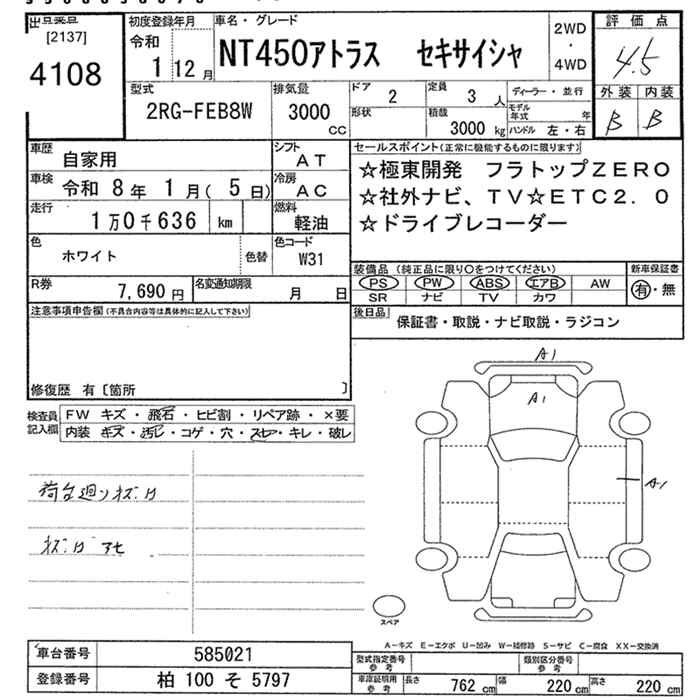 出品票
[2137]
4108
初度登録年月
令和
1 12月
車名・グレード
NT450アトラス セキサイシャ
2WD
・
4WD
評価点
4.5
外装 内装
B B
型式
2RG-FEB8W
排気量
3000
CC
ドア
2
定員
3人
形状
積載
3000 kg
ディーラー・並行
モデル年式 年
ハンドル 左・右
車歴
自家用
シフト
AT
車検
令和 8年 1月( 5日)
冷房
AC
走行
1万0千636 km
燃料
軽油
色
ホワイト
色替
色コード
W31
R券
7,690円
名変通知期限
月 日
セールスポイント(正常に機能するものに限ります)
☆極東開発 フラトップZERO
☆社外ナビ、TV☆ETC2.0
☆ドライブレコーダー
装備品(純正品に限り○をつけてください)
PS PW ABS エアB AW
SR ナビ TV カワ
新車保証書
有・無
後日品
保証書・取説・ナビ取説・ラジコン
注意事項申告欄(不具合内容等は具体的に記入して下さい)
修復歴 有〔箇所 〕
検査員記入欄
FW キズ・飛石・ヒビ割・リペア跡・×要
内装 キズ・汚レ・コゲ・穴・スレ・キレ・破レ
荷台廻りキズ、サ
キズ、サ アセ
A1
A1
A1
スペア
A-キズ E-エクボ U-凹み W-補修跡 S-サビ C-腐食 XX-交換済
車台番号
585021
登録番号
柏 100 そ 5797
型式指定番号
参考
類別区分番号
参考
車庫証明用
参考
長さ 762 cm 幅 220 cm 高さ 220 cm